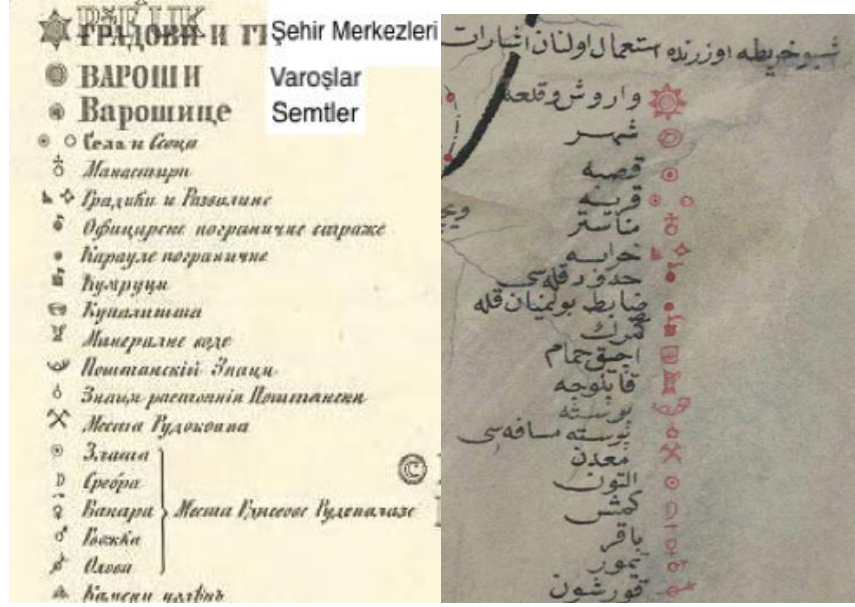 ГРАДОВИ И Şehir Merkezleri
ВАРОШИ Varoşlar
Варошице Semtler
Села и Сеоца
Манастири
Градићи и Развалине
Официрске пограничне страже
Карауле пограничне
Ђумруци
Купалишта
Минералне воде
Поштанскій Знаци
Знаци растоянія Поштански
Места Рудокопна
Злата
Сребра
Бакара Места
Гвожђа
Олова
Камени
©
شبو خريطه اوزرنده استعمال اولنان اشارات
واروش و قلعه
شهر
قصبه
قريه
مناستر
خرابه
حدود قله سی
ضابط بولميان قله
كمرك
اچيق حمام
قاپلوجه
پوسته
پوسته مسافه سی
معدن
التون
كمش
باقر
تيمور
قورشون